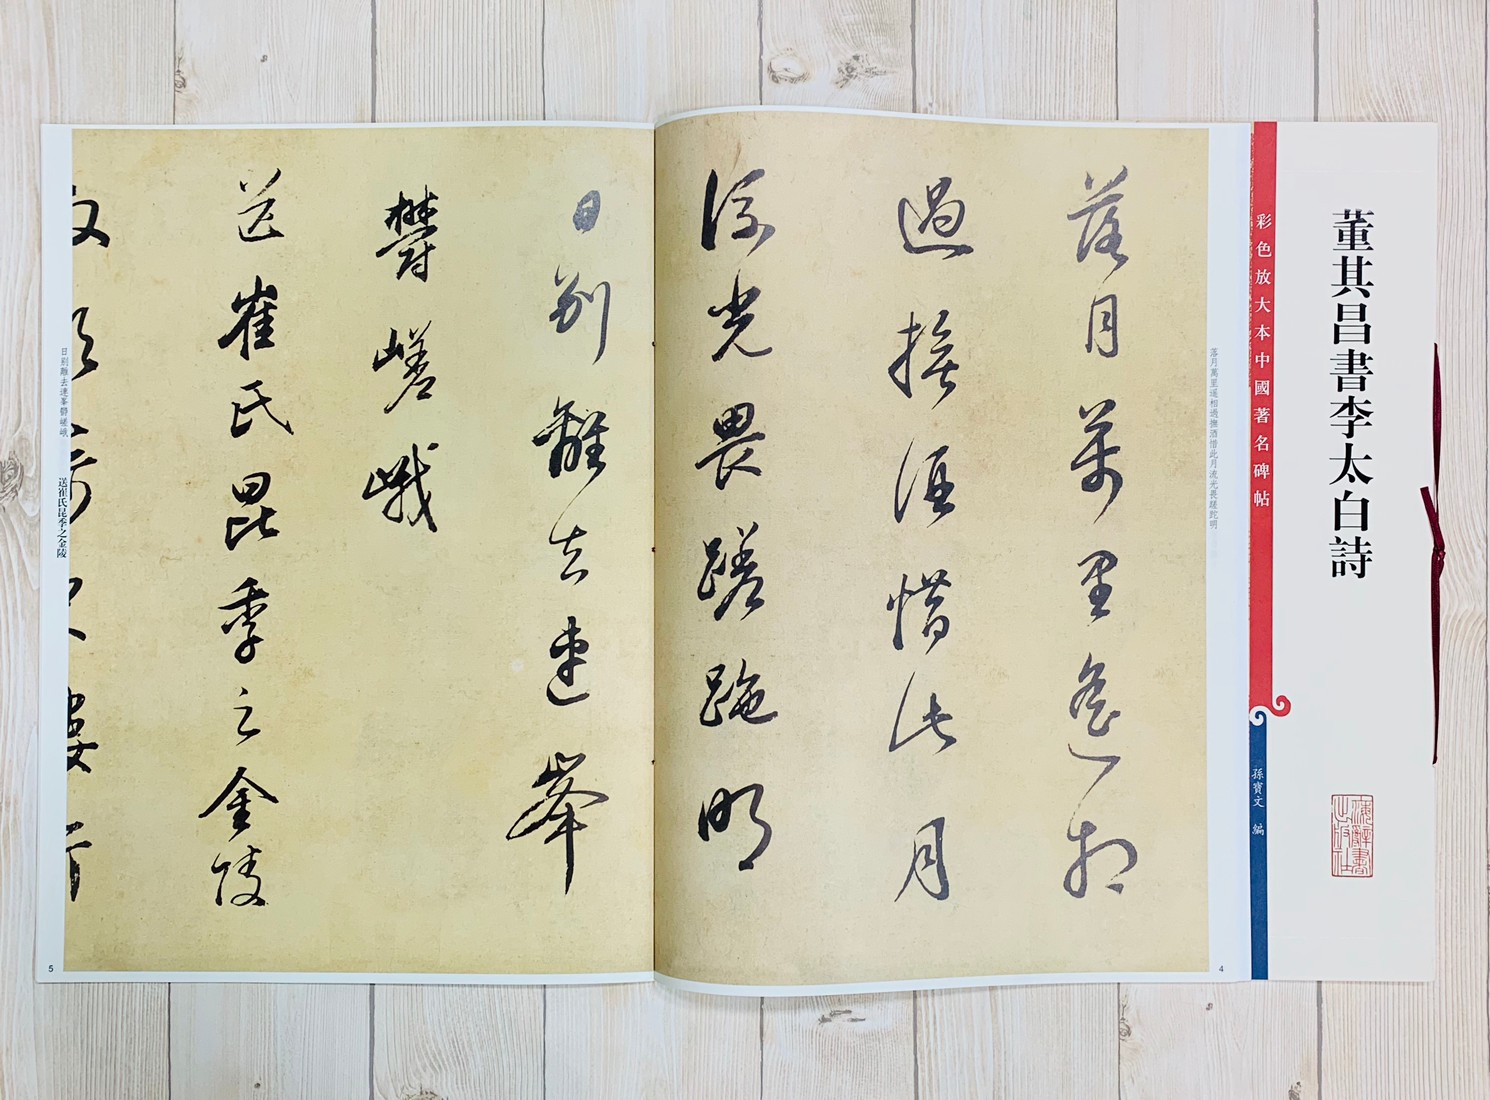 董其昌書李太白詩
彩色放大本中國著名碑帖
孫寶文 編
海辭書出版社
落月萬里遙相過撫酒惜此月流光畏蹉跎明
落月萬里遙相
過撫酒惜此月
流光畏蹉跎明
日別離去連峯
鬱嵯峨
送崔氏昆季之金陵
日別離去連峯鬱嵯峨
送崔氏昆季之金陵
4
5